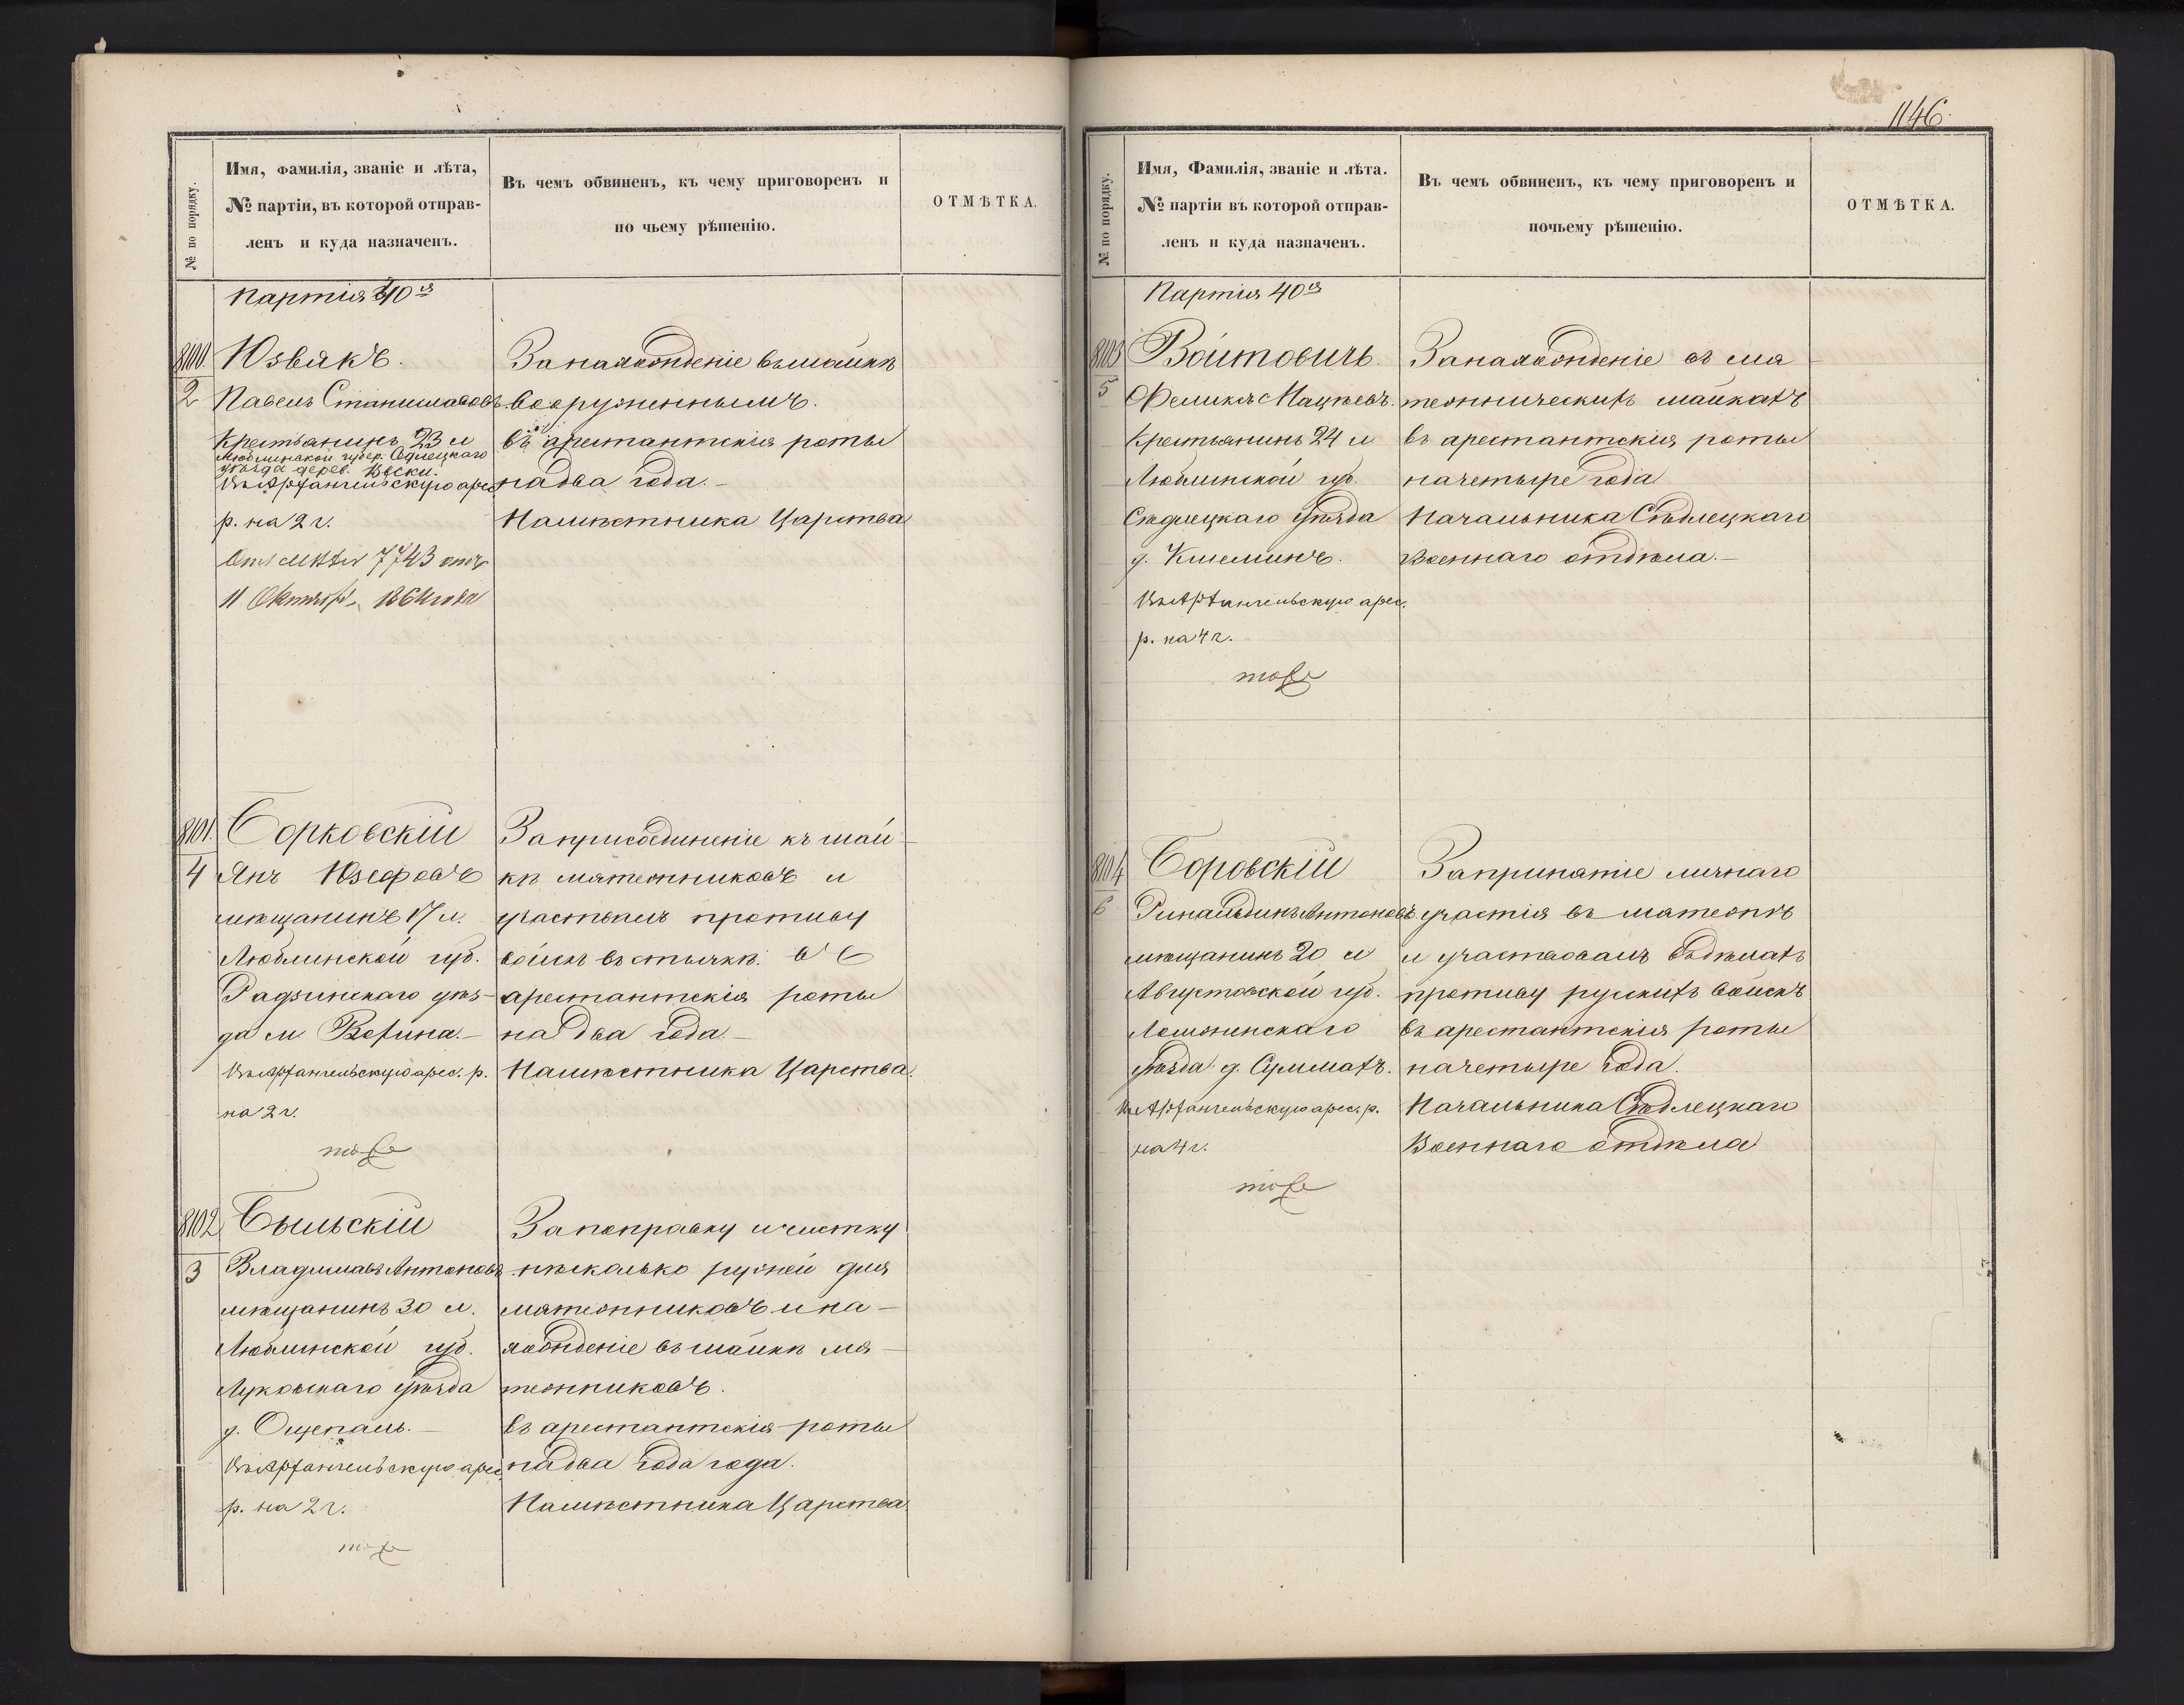 № по порядку.
Имя, фамилія, званіе и лѣта,
№ партіи, въ которой отправ-
ленъ и куда назначенъ.
Въ чемъ обвиненъ, къ чему приговоренъ и
по чьему рѣшенію.
ОТМѢТКА.
Партія 40я
8100
2
Юзвякъ.
Павелъ Станиславовъ
Крестьянинъ 23 л
Люблинской губер. Седлецкаго
уѣзда дерев.
Въ Архангельскую арес
р. на 2 г.
7743 отъ
11 Октября 1864 года
За нахожденіе въ шайкѣ
вооруженнымъ.
въ арестантскія роты
на два года.-
Намѣстника Царства
8101.
4
Борковскій
Янъ Юзефовъ
мѣщанинъ 17 л.
Люблинской губ.
Радзинскаго уѣз-
да м Вогина.-
Въ Архангельскую арес. р.
на 2 г.
тоже
За присоединеніе къ шай-
кѣ мятежниковъ и
участвалъ противу
войскъ въ стычкѣ. въ
арестантскія роты
на два года.-
Намѣстника Царства.
8102
3
Быльскій
Владиславъ Антоновъ
мѣщанинъ 30 л.
Люблинской губ.
Луковскаго уѣзда
д. Ощепаль.-
Въ Архангельскую арес.
р. на 2 г.
тоже
За поправку и чистку
нѣсколько ружей для
мятежниковъ и на-
хожденіе въ шайкѣ мя-
тежниковъ.
въ арестантскія роты
на два года года.
Намѣстника Царства.
1146.
№ по порядку.
Имя, Фамилія, званіе и лѣта.
№ партіи въ которой отправ-
ленъ и куда назначенъ.
Въ чемъ обвиненъ, къ чему приговоренъ и
почьему рѣшенію.
ОТМѢТКА.
Партія 40я
8103
5
Войтовичъ
Феликсъ Мацѣевъ.
Крестьянинъ 24 л
Люблинской губ.
Сѣдлецкаго Уѣзда
д. Клеминъ.
Въ Архангельскую арес.
р. на 4 г.
тоже
За нахожденіе въ мя-
тежническихъ шайкахъ
въ арестантскія роты
на четыре года
Начальника Сѣдлецкаго
Военнаго отдѣла.-
8104
6
Боровскій
Ринальдинъ Антоновъ
мѣщанинъ 20 л
Августовской губ.
Ломжинскаго
уѣзда д.
Въ Архангельскую арес. р.
на 4 г.
тоже
За принятіе личнаго
участія въ мятежѣ
и участвовалъ въ дѣлахъ
противу русскихъ войскъ
въ арестантскія роты
на четыре года.
Начальника Сѣдлецкаго
Военнаго отдѣла